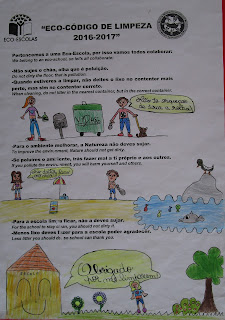 ECO-ESCOLAS
"ECO-CÓDIGO DE LIMPEZA
2016-2017"
Pertencemos a uma Eco-Escola, por isso vamos todos colaborar.
We belong to an ecoschool, so let's all collaborate.
-Não sujes o chão, olha que é poluição.
Do not dirty the floor, that is pollution.
-Quando estiveres a limpar, não deites o lixo no contentor mais
perto, mas sim no contentor correto.
When cleaning, do not litter in the nearest container, but in the correct container.
-Para o ambiente melhorar, a Natureza não deves sujar.
To improve the environment, Nature should not get dirty.
-Se poluires o ambiente, irás fazer mal a ti próprio e aos outros.
If you pollute the environment, you will harm yourself and others.
-Para a escola limpa ficar, não a deves sujar.
For the school to stay clean, you should not dirty it.
-Menos lixo deves fazer para a escola poder agradecer.
Less litter you should do, so school can thank you.
Obrigado
por me